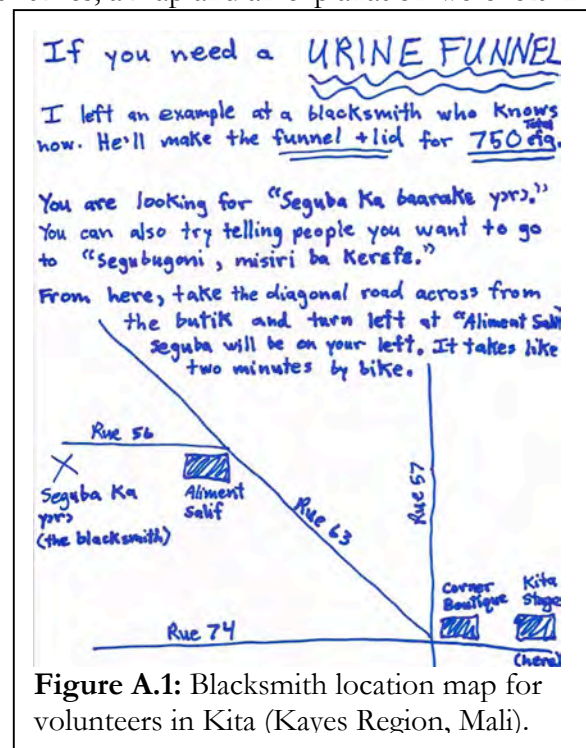 , a map and an explanation were
If you need a URINE FUNNEL
I left an example at a blacksmith who knows
now. He'll make the funnel + lid for 750 cfa.
Total
You are looking for "Seguba Ka baarake yɔrɔ."
You can also try telling people you want to go
to "Segubugoni, misiri ba Kerefe."
From here, take the diagonal road across from
the butik and turn left at "Aliment Salif
Seguba will be on your left. It takes like
two minutes by bike.
Rue 56
Rue 57
Seguba Ka
yɔrɔ
(the blacksmith)
Aliment
Salif
Rue 63
Corner
Boutique
Kita
Stage
Rue 74
(here)
Figure A.1: Blacksmith location map for
volunteers in Kita (Kayes Region, Mali).